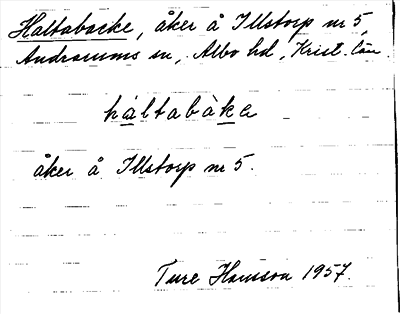 Haltabacke, åker å Illstorp nr 5,
Andrarums sn, Albo hd, Krist. län
háltabàka
åker å Illstorp nr 5.
Ture Hansson 1957.